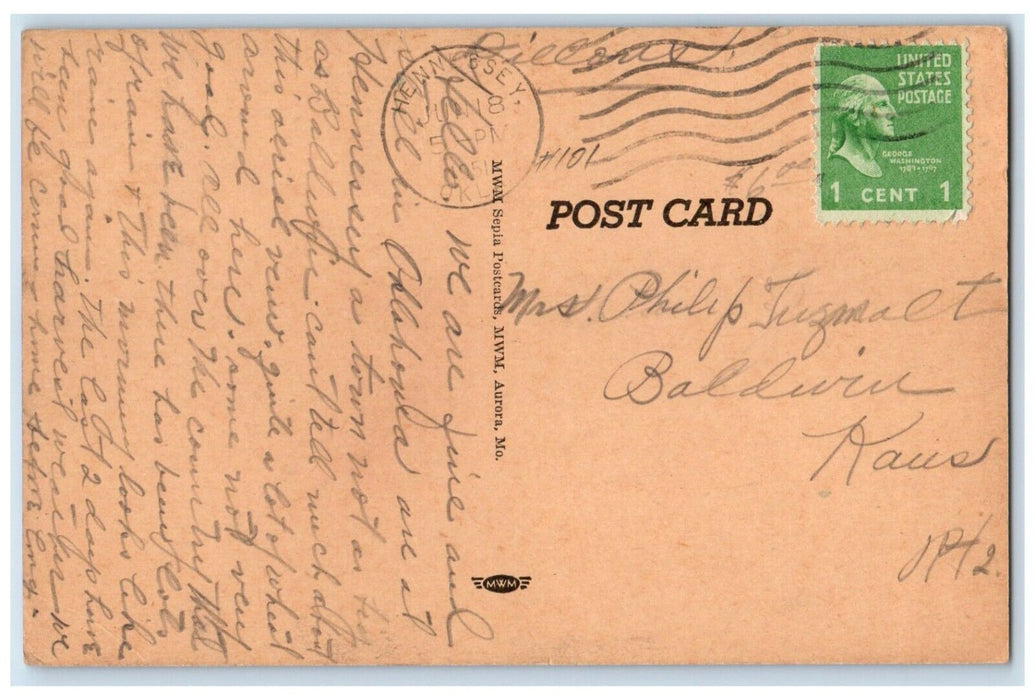 Hello, we are fine and
still in Oklahoma are at
Hennessey a town not as big
as Baldwin - can't tell much about
this aerial view, quite a lot of wheat
around here, some not very
good. All over the country that
we have been there has been lots
of rain & this morning looks like
rain again. The last 2 days have
been good harvest weather we
will be coming home before long.
HENNESSEY,
OKLA.
#101
UNITED
STATES
POSTAGE
GEORGE
WASHINGTON
1789-1797
1 CENT 1
POST CARD
MWM Sepia Postcards, MWM, Aurora, Mo.
MWM
Mrs. Philip
Baldwin
Kans